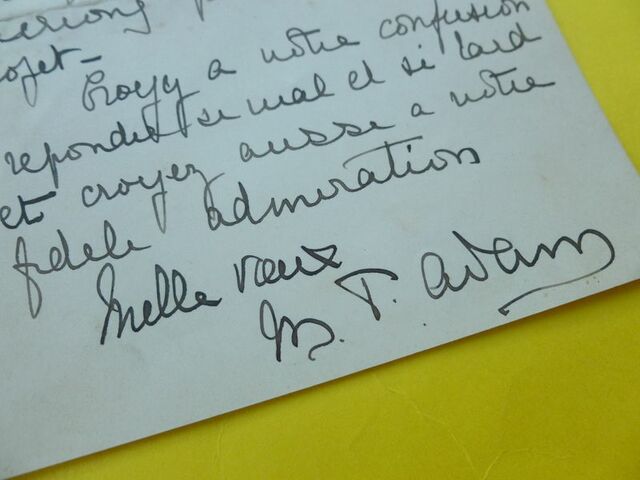 ojet -
Croyez a notre confusion
repondre si mal et si tard
et croyez aussi a notre
fidele admiration
Mille vœux
M. T. Adam